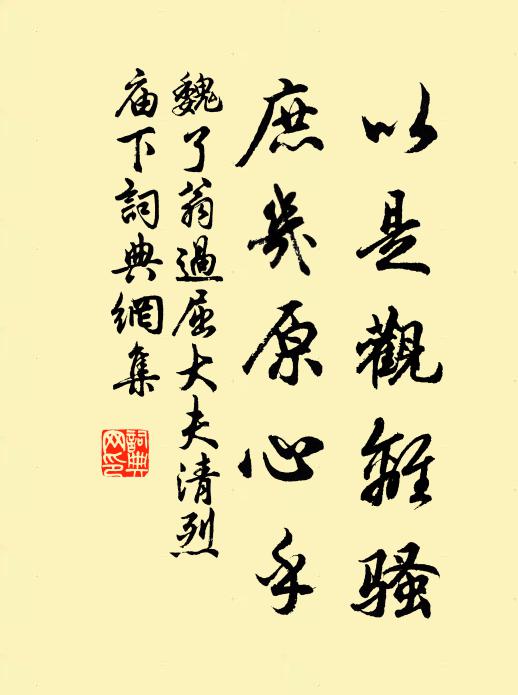 以是觀離骚
庶幾原心乎
魏了翁過屈大夫清烈
庙下詞典網集
詞典網印